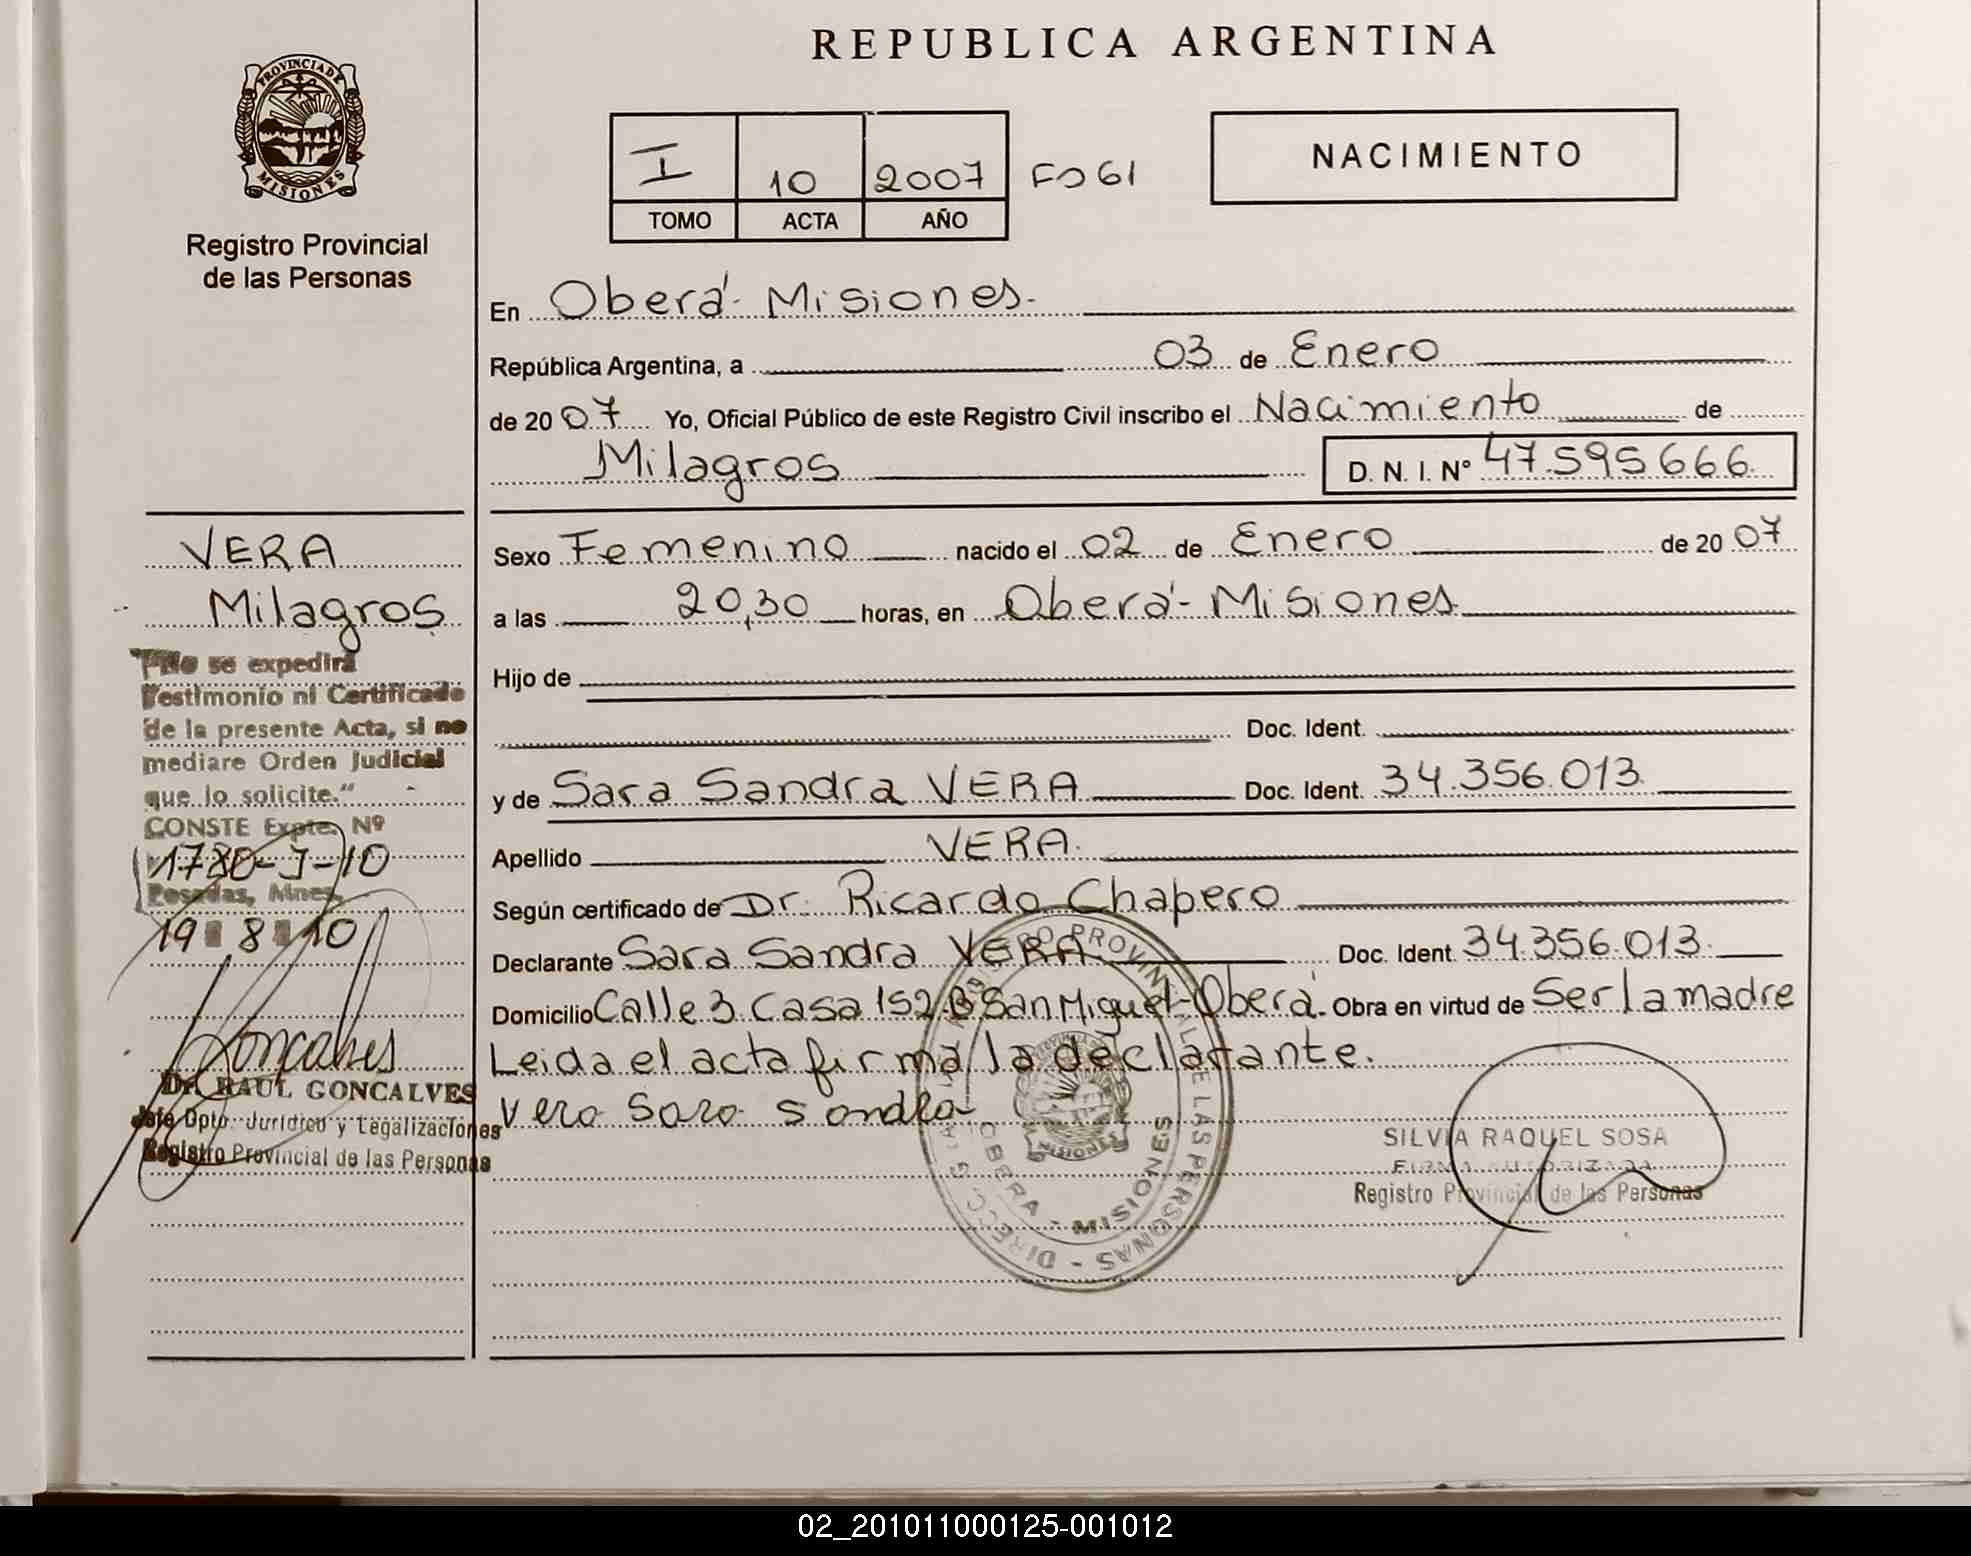 REPUBLICA ARGENTINA
PROVINCIA DE
MISIONES
Registro Provincial
de las Personas
I 10 2007 Fo 61
TOMO ACTA AÑO
NACIMIENTO
En Oberá - Misiones.
República Argentina, a 03 de Enero
de 20 07 Yo, Oficial Público de este Registro Civil inscribo el Nacimiento de
Milagros D. N. I. Nº 47.595.666
Sexo Femenino nacido el 02 de Enero de 20 07
a las 20,30 horas, en Oberá - Misiones
Hijo de
Doc. Ident.
y de Sara Sandra VERA Doc. Ident. 34.356.013
Apellido VERA
Según certificado de Dr. Ricardo Chapero
Declarante Sara Sandra VERA Doc. Ident 34.356.013
Domicilio Calle 3 Casa 152 Bº San Miguel - Oberá. Obra en virtud de Ser la madre
Leida el acta firma la declarante.
Vera Sara Sandra
VERA
Milagros
"No se expedirá
Testimonio ni Certificado
de la presente Acta, si no
mediare Orden Judicial
que lo solicite."
CONSTE Expte. Nº
1780-J-10
Posadas, Mnes,
19 8 10
Goncalves
Dr. RAUL GONCALVES
Jefe Dpto. Jurídico y Legalizaciones
Registro Provincial de las Personas
PROVINCIAL DE LAS PERSONAS
OBERA - MISIONES
MISIONES
SILVIA RAQUEL SOSA
FIRMA AUTORIZADA
Registro Provincial de las Personas
02_201011000125-001012